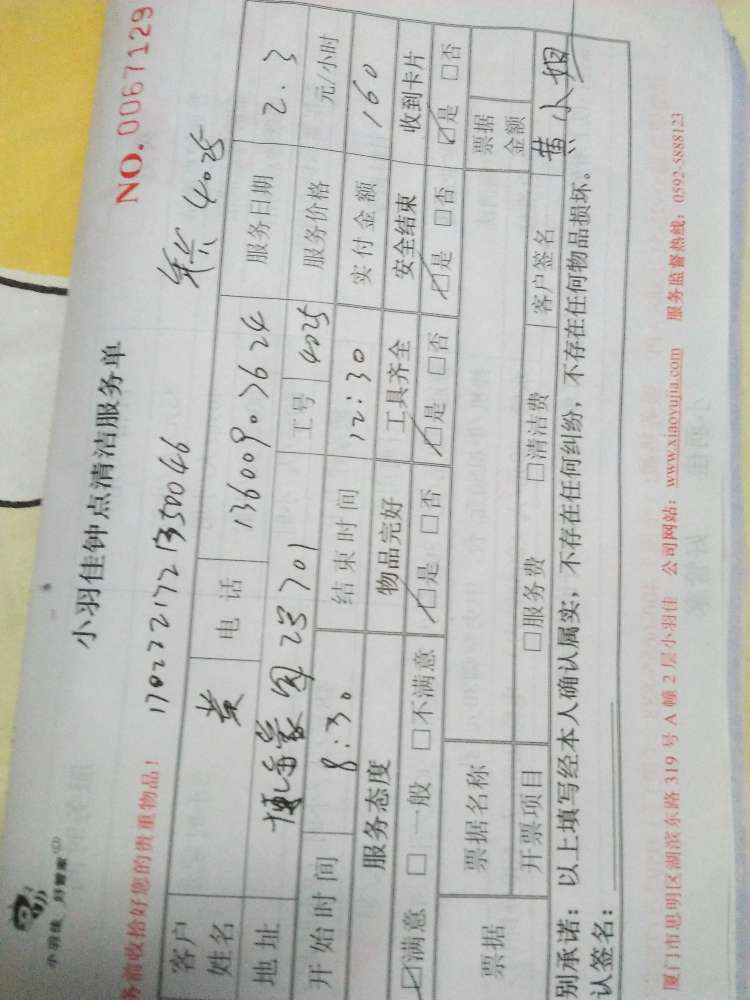 小羽佳 好管家
小羽佳钟点清洁服务单
务前收拾好您的贵重物品!
NO. 0067129
4025
客户姓名 黄 电话 13600907624 服务日期 2.3
地址 701 工号 4025 服务价格 元/小时
开始时间 8:30 结束时间 12:30 实付金额 160
服务态度 物品完好 工具齐全 安全结束 收到卡片
☑满意 □一般 □不满意 ☑是 □否 ☑是 □否 ☑是 □否 ☑是 □否
票据 票据名称 票据金额
开票项目 □服务费 □清洁费 客户签名 黄小姐
别承诺: 以上填写经本人确认属实,不存在任何纠纷,不存在任何物品损坏。
认签名:
厦门市思明区湖滨东路 319 号 A 幢 2 层小羽佳 公司网站: www.xiaoyujia.com 服务监督热线: 0592-5888123